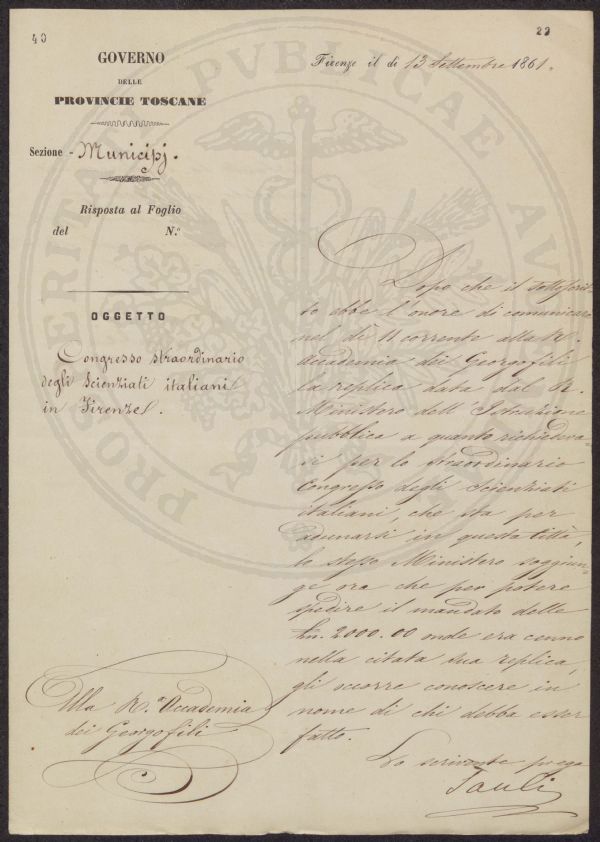 40
22
GOVERNO
DELLE
PROVINCIE TOSCANE
Sezione - Municipj.
Risposta al Foglio
del N.º
OGGETTO
Congresso straordinario
degli Scienziati italiani
in Firenze.
Alla R.ª Accademia
dei Georgofili
Firenze il dì 13 Settembre 1861.
Dopo che il sottoscrit-
to ebbe l'onore di comunicare
nel dì 11 corrente alla R.
Accademia dei Georgofili
la replica data dal R.
Ministero dell'Istruzione
pubblica a quanto richiedeva-
si per lo straordinario
Congresso degli Scienziati
italiani, che sta per
adunarsi in questa Città,
lo stesso Ministero soggiun-
ge ora che per potere
spedire il mandato delle
Ln. 2000.00 onde era cenno
nella citata sua replica,
gli occorre conoscere in
nome di chi debba esser
fatto.
Lo scrivente prega
PROSPERITATI PVBLICAE AVG